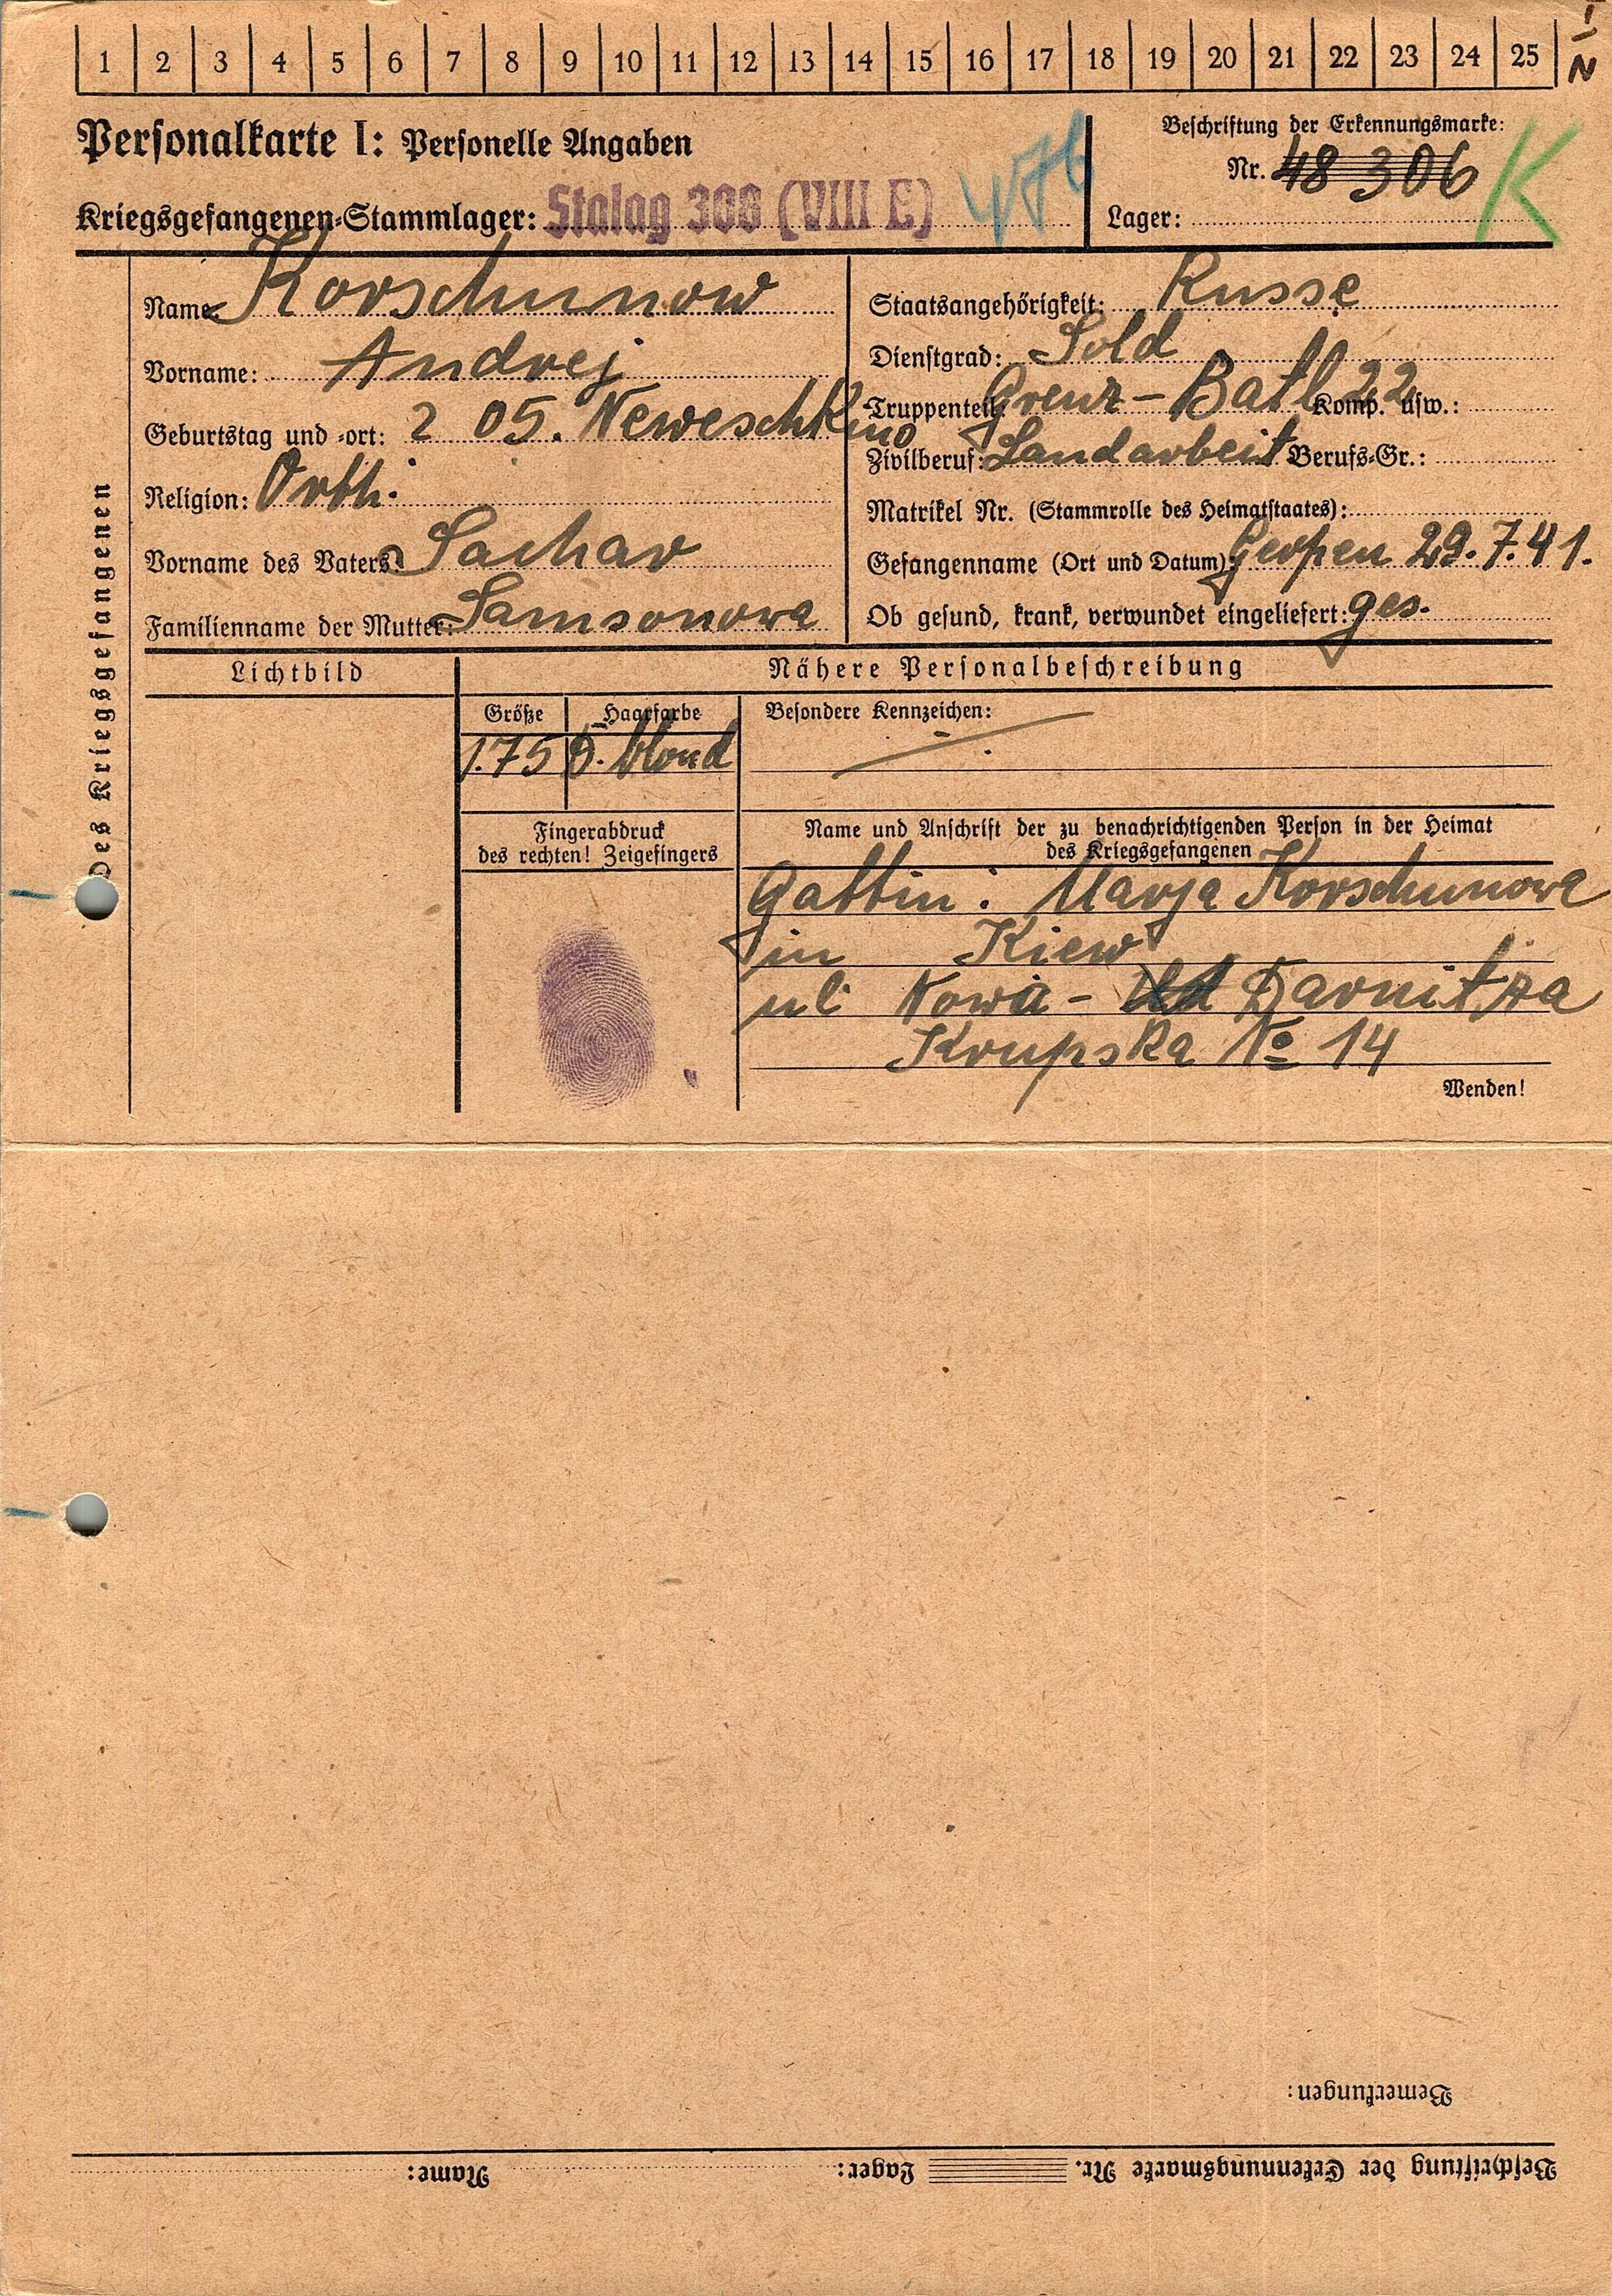 1 2 3 4 5 6 7 8 9 10 11 12 13 14 15 16 17 18 19 20 21 22 23 24 25
Personalkarte I: Personelle Angaben
Kriegsgefangenen-Stammlager: Stalag 308 (VIII E) 476
Beschriftung der Erkennungsmarke:
Nr. 48 306 K
Lager:
Des Kriegsgefangenen
Name: Korschunow
Vorname: Andrej
Geburtstag und -ort: 2 05. Neweschkino
Religion: Orth.
Vorname des Vaters: Sachar
Familienname der Mutter: Samsonowa
Staatsangehörigkeit: Russe
Dienstgrad: Sold
Truppenteil: Grenz-Batl 22 Komp. usw.:
Zivilberuf: Landarbeit Berufs-Gr.:
Matrikel Nr. (Stammrolle des Heimatstaates):
Gefangenname (Ort und Datum): 29.7.41.
Ob gesund, krank, verwundet eingeliefert: ges.
Lichtbild
Nähere Personalbeschreibung
Größe
1.75
Haarfarbe
D. blond
Besondere Kennzeichen:
Fingerabdruck
des rechten! Zeigefingers
Name und Anschrift der zu benachrichtigenden Person in der Heimat
des Kriegsgefangenen
Gattin: Marja Korschunowa
in Kiew
ul Nowa - Darnitza
Krupska No 14
Wenden!
Bemerkungen:
Beschriftung der Erkennungsmarke Nr. Lager: Name: